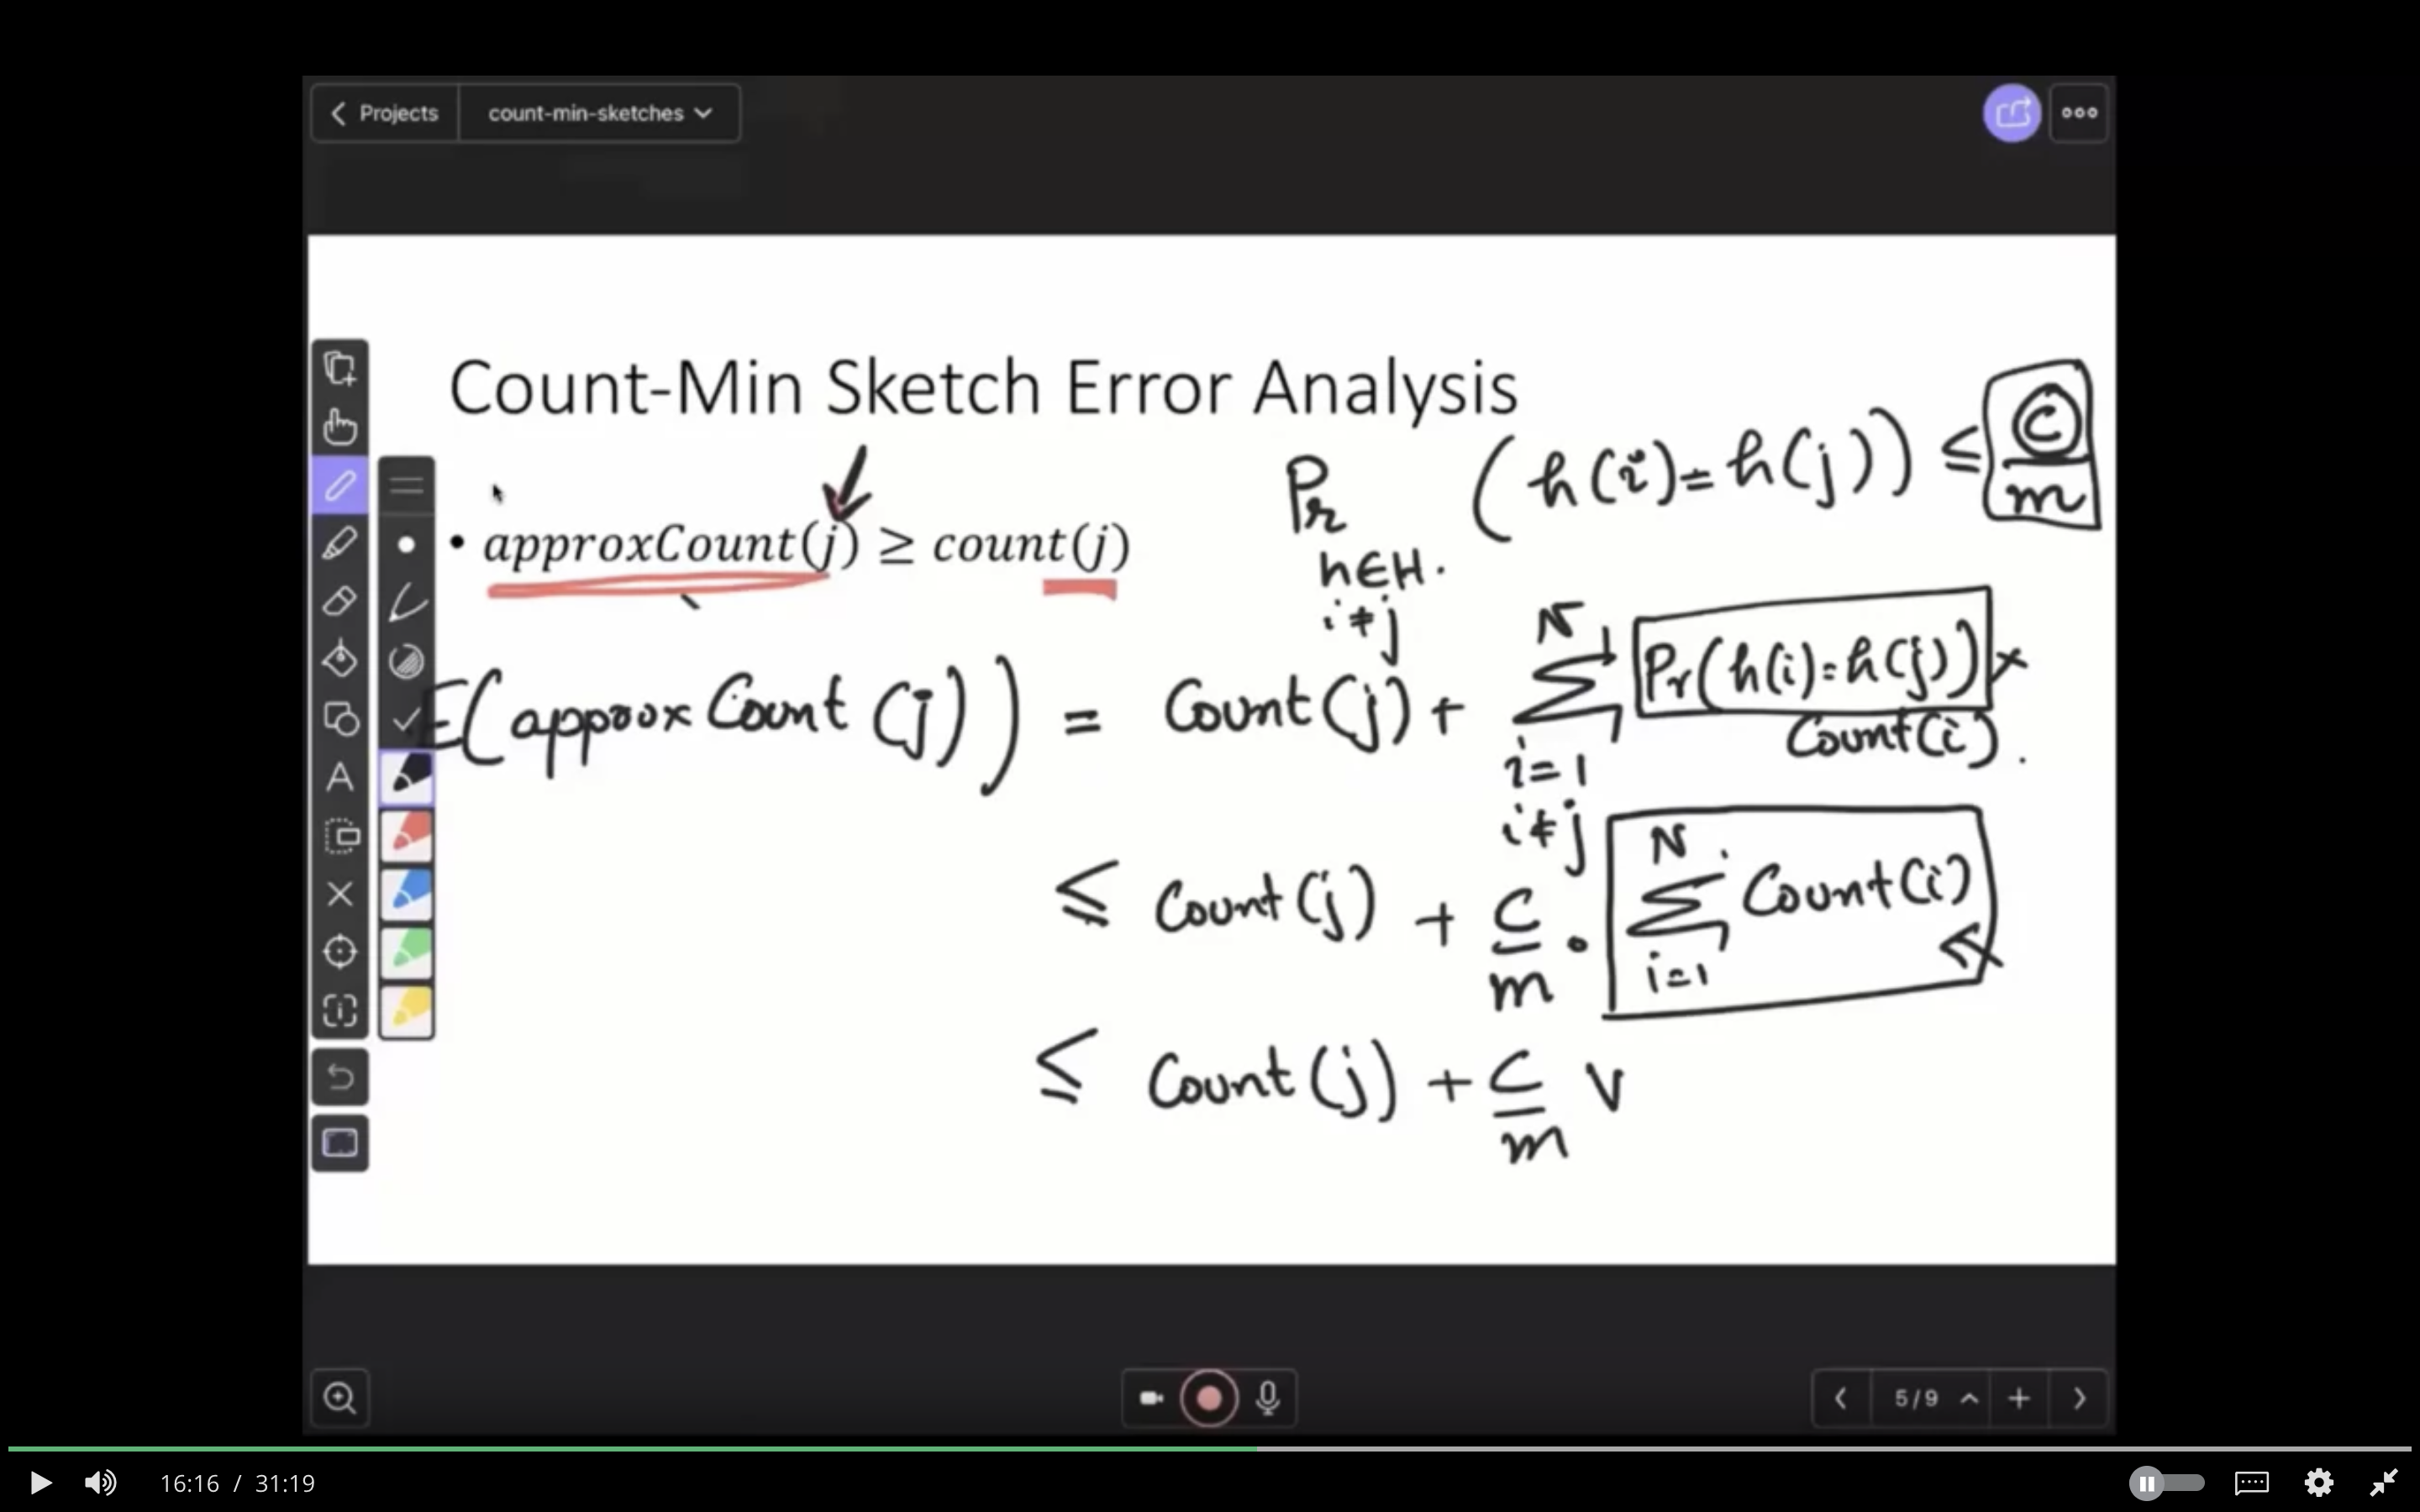 Projects count-min-sketches
Count-Min Sketch Error Analysis
Pr (h(i)=h(j)) ≤ c/m
h∈H.
i≠j
• approxCount(j) ≥ count(j)
E(approxCount(j)) = Count(j) + N ∑ i=1 i≠j Pr(h(i)=h(j)) × Count(i).
≤ Count(j) + c/m • N ∑ i=1 Count(i)
≤ Count(j) + c/m V
5/9
16:16 / 31:19